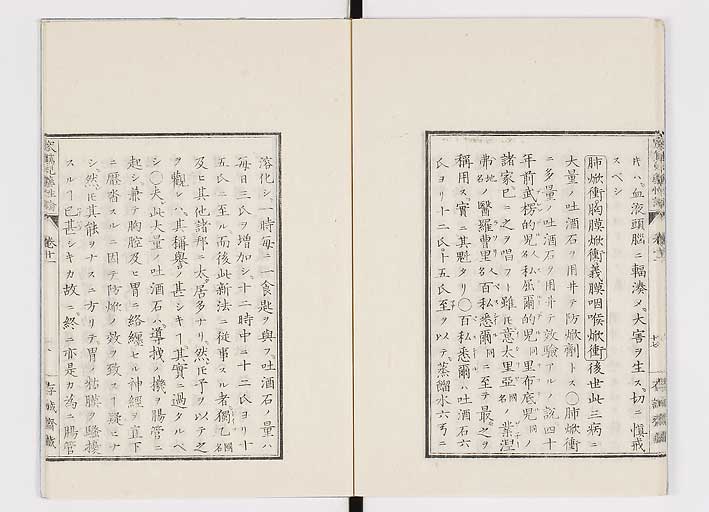 片ハ、血液頭腦ニ輻湊メ、大害ヲ生ス、切ニ愼戒
スベシ
肺焮衝胸膜焮衝義膜咽喉焮衝後世此三病ニ
大量ノ吐酒石ヲ用井テ防焮劑トス○肺焮衝
ニ多量ノ吐酒石ヲ用井テ效驗アルノ説四十
年前武楞的兒人名私屈爾的兒同里布底兒同ノ
諸家已ニ之ヲ唱フト雖㕥意太里亞國名ノ業涅
弗地名ノ醫羅曹里人名百私悉爾同ニ至テ最之ヲ
稱用ス、實ニ其魁タリ○百私悉爾ハ吐酒石六
氏ヨリ十二氏ト五氏至ヲ以テ、蒸餾水六弓ニ
溶化シ、一時毎ニ一食匙ヲ與フ、吐酒石ノ量ハ
毎日三氏ヲ増加シ、十二時中ニ十二氏ヨリ十
五氏ニ至ル、而後此新法ニ從事スル者獨乙國名
及ヒ其他諸邦ニ太居多ナリ、然㕥予ヲ以テ之
ヲ觀レハ、其稱譽ノ甚シキ其實ニ過タルベ
シ○夫此大量ノ吐酒石ハ導拽ノ機ヲ腸管ニ
起シ、兼テ胸腔及ヒ胃ニ絡纏セル神經ヲ直下
ニ壓沓スルニ因テ防焮ノ效ヲ致ス疑ナ
シ然㕥其能ヲナスニ方リテ胃ノ粘膜ヲ騷擾
スル已甚シキカ故ニ終ニ亦是カ為ニ腸管
卷廿一
存誠齋藏